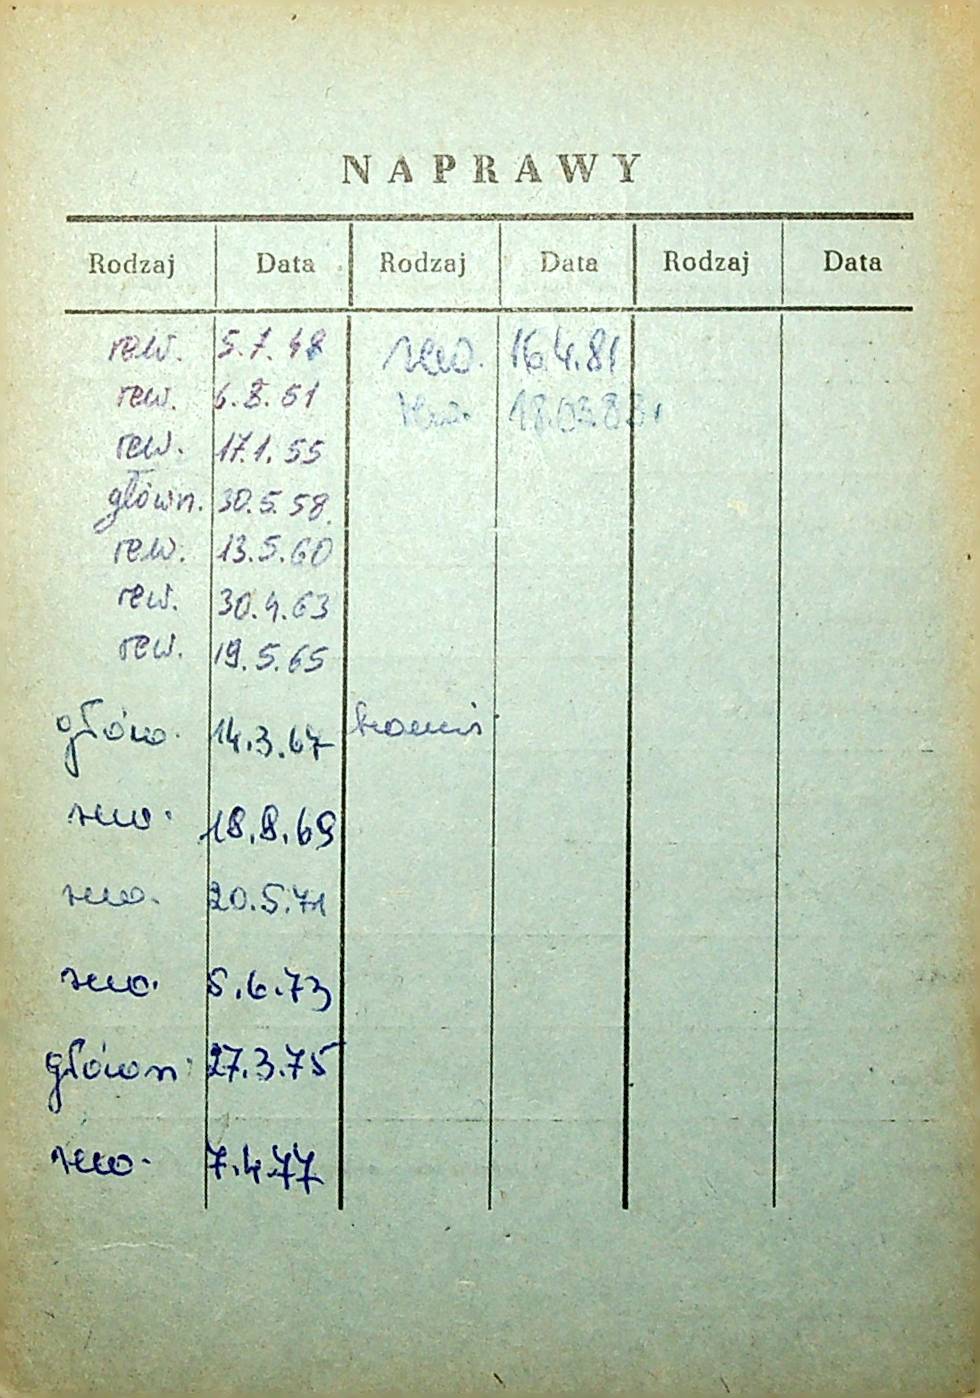 NAPRAWY
Rodzaj Data Rodzaj Data Rodzaj Data
rew. 5.7.48 rew. 16.4.81
rew. 6.8.51 rew. 18.03.83.
rew. 17.1.55
główn. 30.5.58.
rew. 13.5.60
rew. 30.4.63
rew. 19.5.65
główn. 14.3.67
rew. 18.8.69
rew. 20.5.71
rew. 5.6.73
główn. 27.3.75
rew. 7.4.77